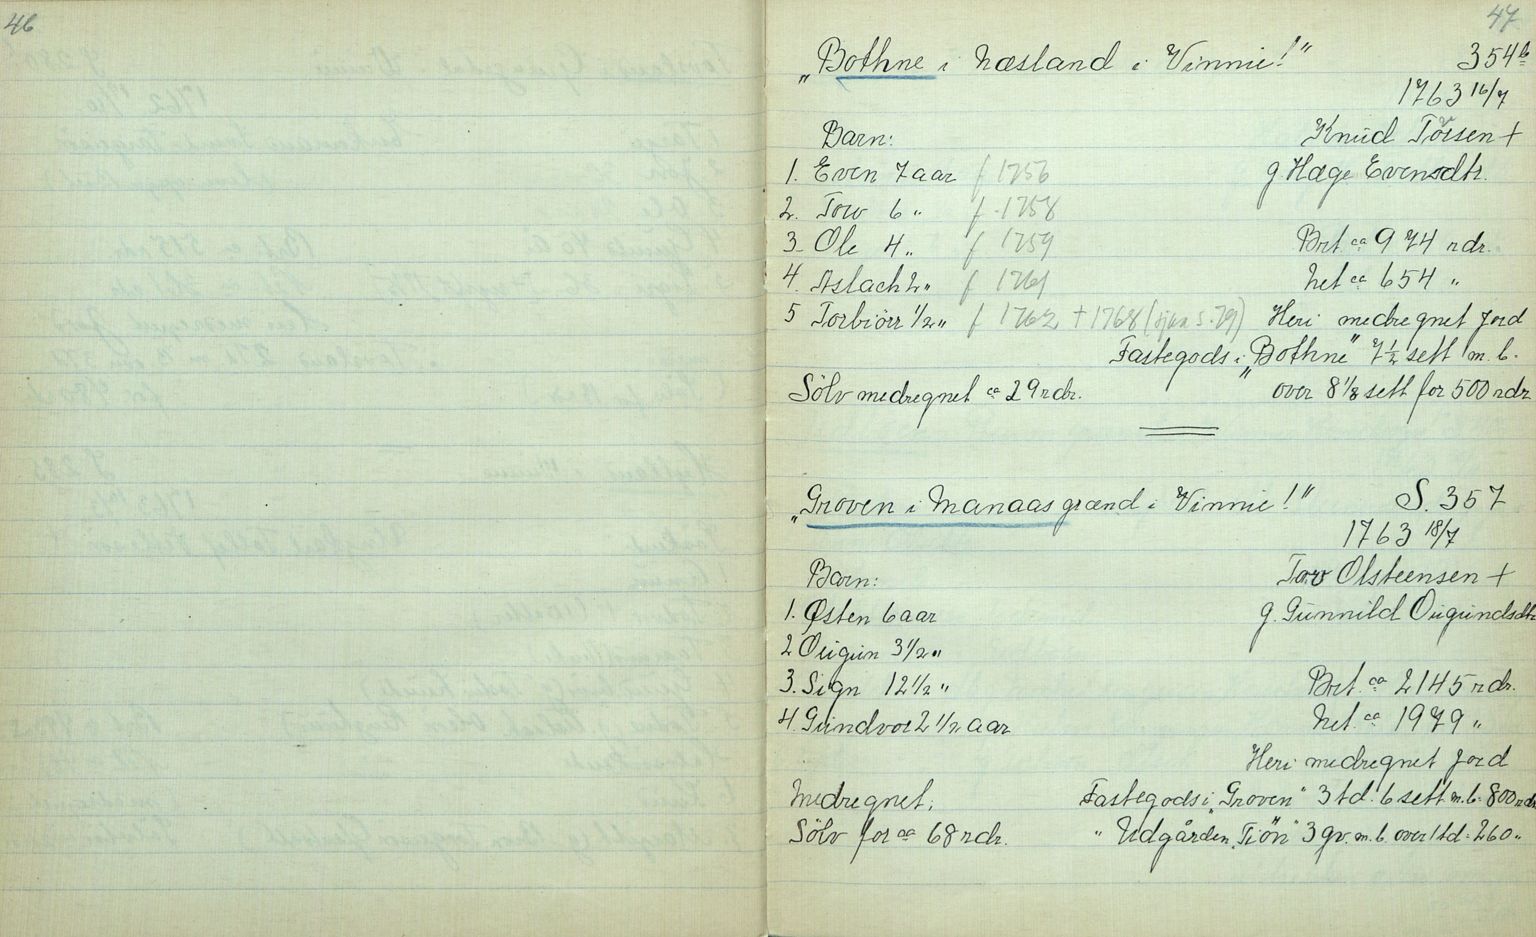 46
47
„Bothne i Næsland i Vinnie!" 354b
1763 16/7
Barn: Knud Torsen +
1. Even 7 aar f 1756 g Hæge Evensdtr.
2. Tov 6 „ f 1758
3. Ole 4 „ f 1759 Brt. ca 974 rdr.
4. Aslach 2 „ f 1761 Net ca 654 „
5 Torbiörr 1/2 „ f 1762 + 1768 (sjaa s. 79) Heri medregnet Jord
Fastegods i „Bothne" 7 1/2 sett m. b.
Sölv medregnet ca 29 rdr. over 8 1/8 sett for 500 rdr
„Groven i Manaas grænd i Vinnie!" S. 357
1763 18/7
Barn: Tov Olsteensen +
1. Østen 6 aar g. Gunnild Ougundsdtr
2 Ougun 3 1/2 „
3. Sign 12 1/2 „ Brt. ca 2145 rdr.
4. Gundvor 2 1/2 aar Net. ca 1979 „
Heri medregnet Jord
Medregnet: Fastegods i „Groven" 3 td. 6 sett m. b. 800 rdr
Sölv for ca 68 rdr. „ Udgården „Tiön" 3 gv. m. b. over 1 td = 260 „